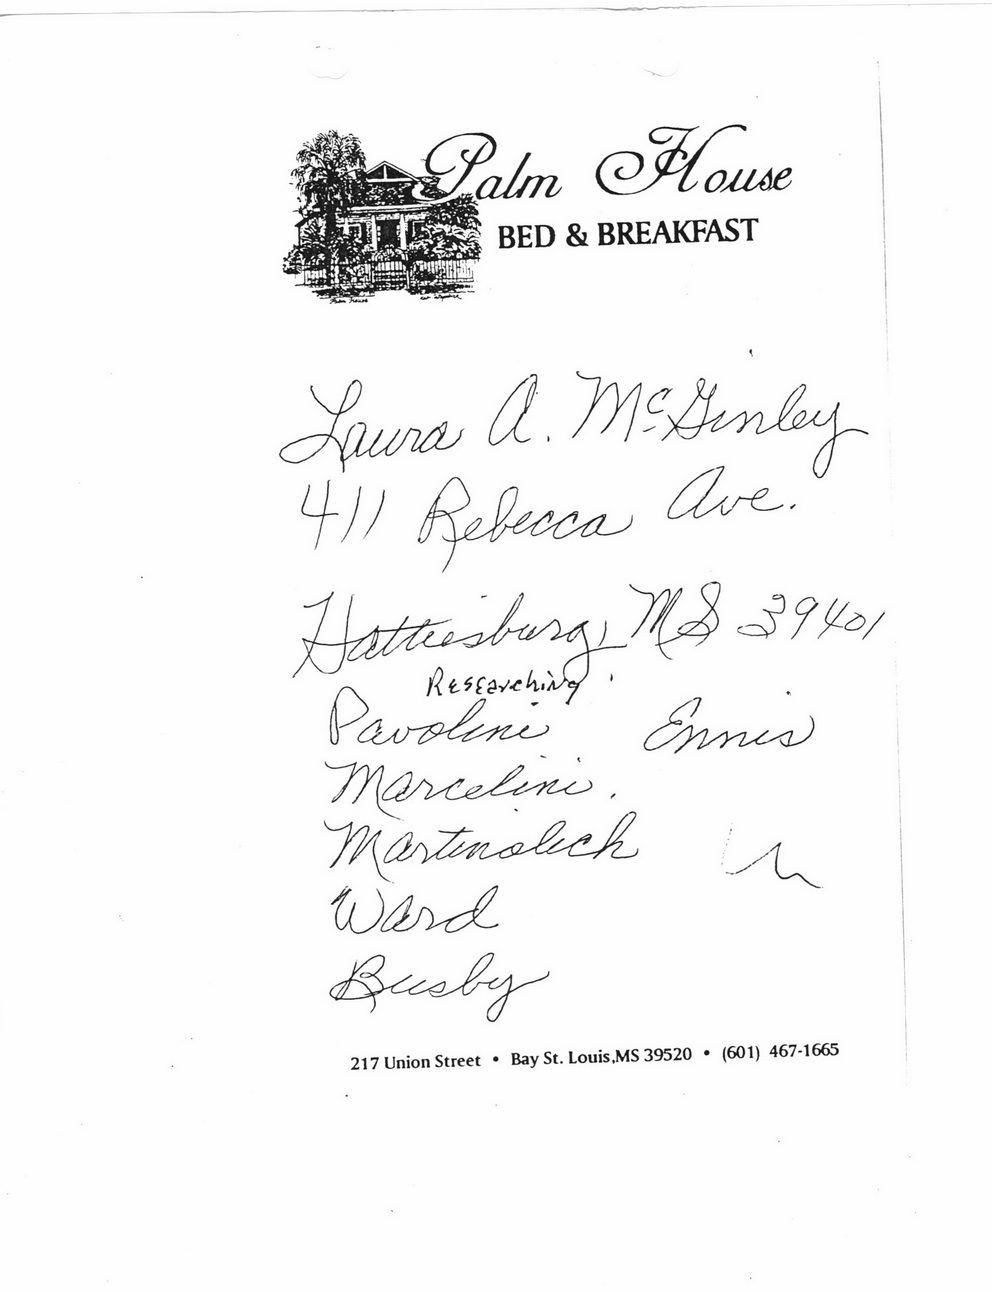 Palm House
BED & BREAKFAST
Palm House
Laura A. McGinley
411 Rebecca Ave.
Hattiesburg, MS 39401
Researching
Pavolini Ennis
Marcelini
Martinolich
Ward
Busby
217 Union Street • Bay St. Louis,MS 39520 • (601) 467-1665